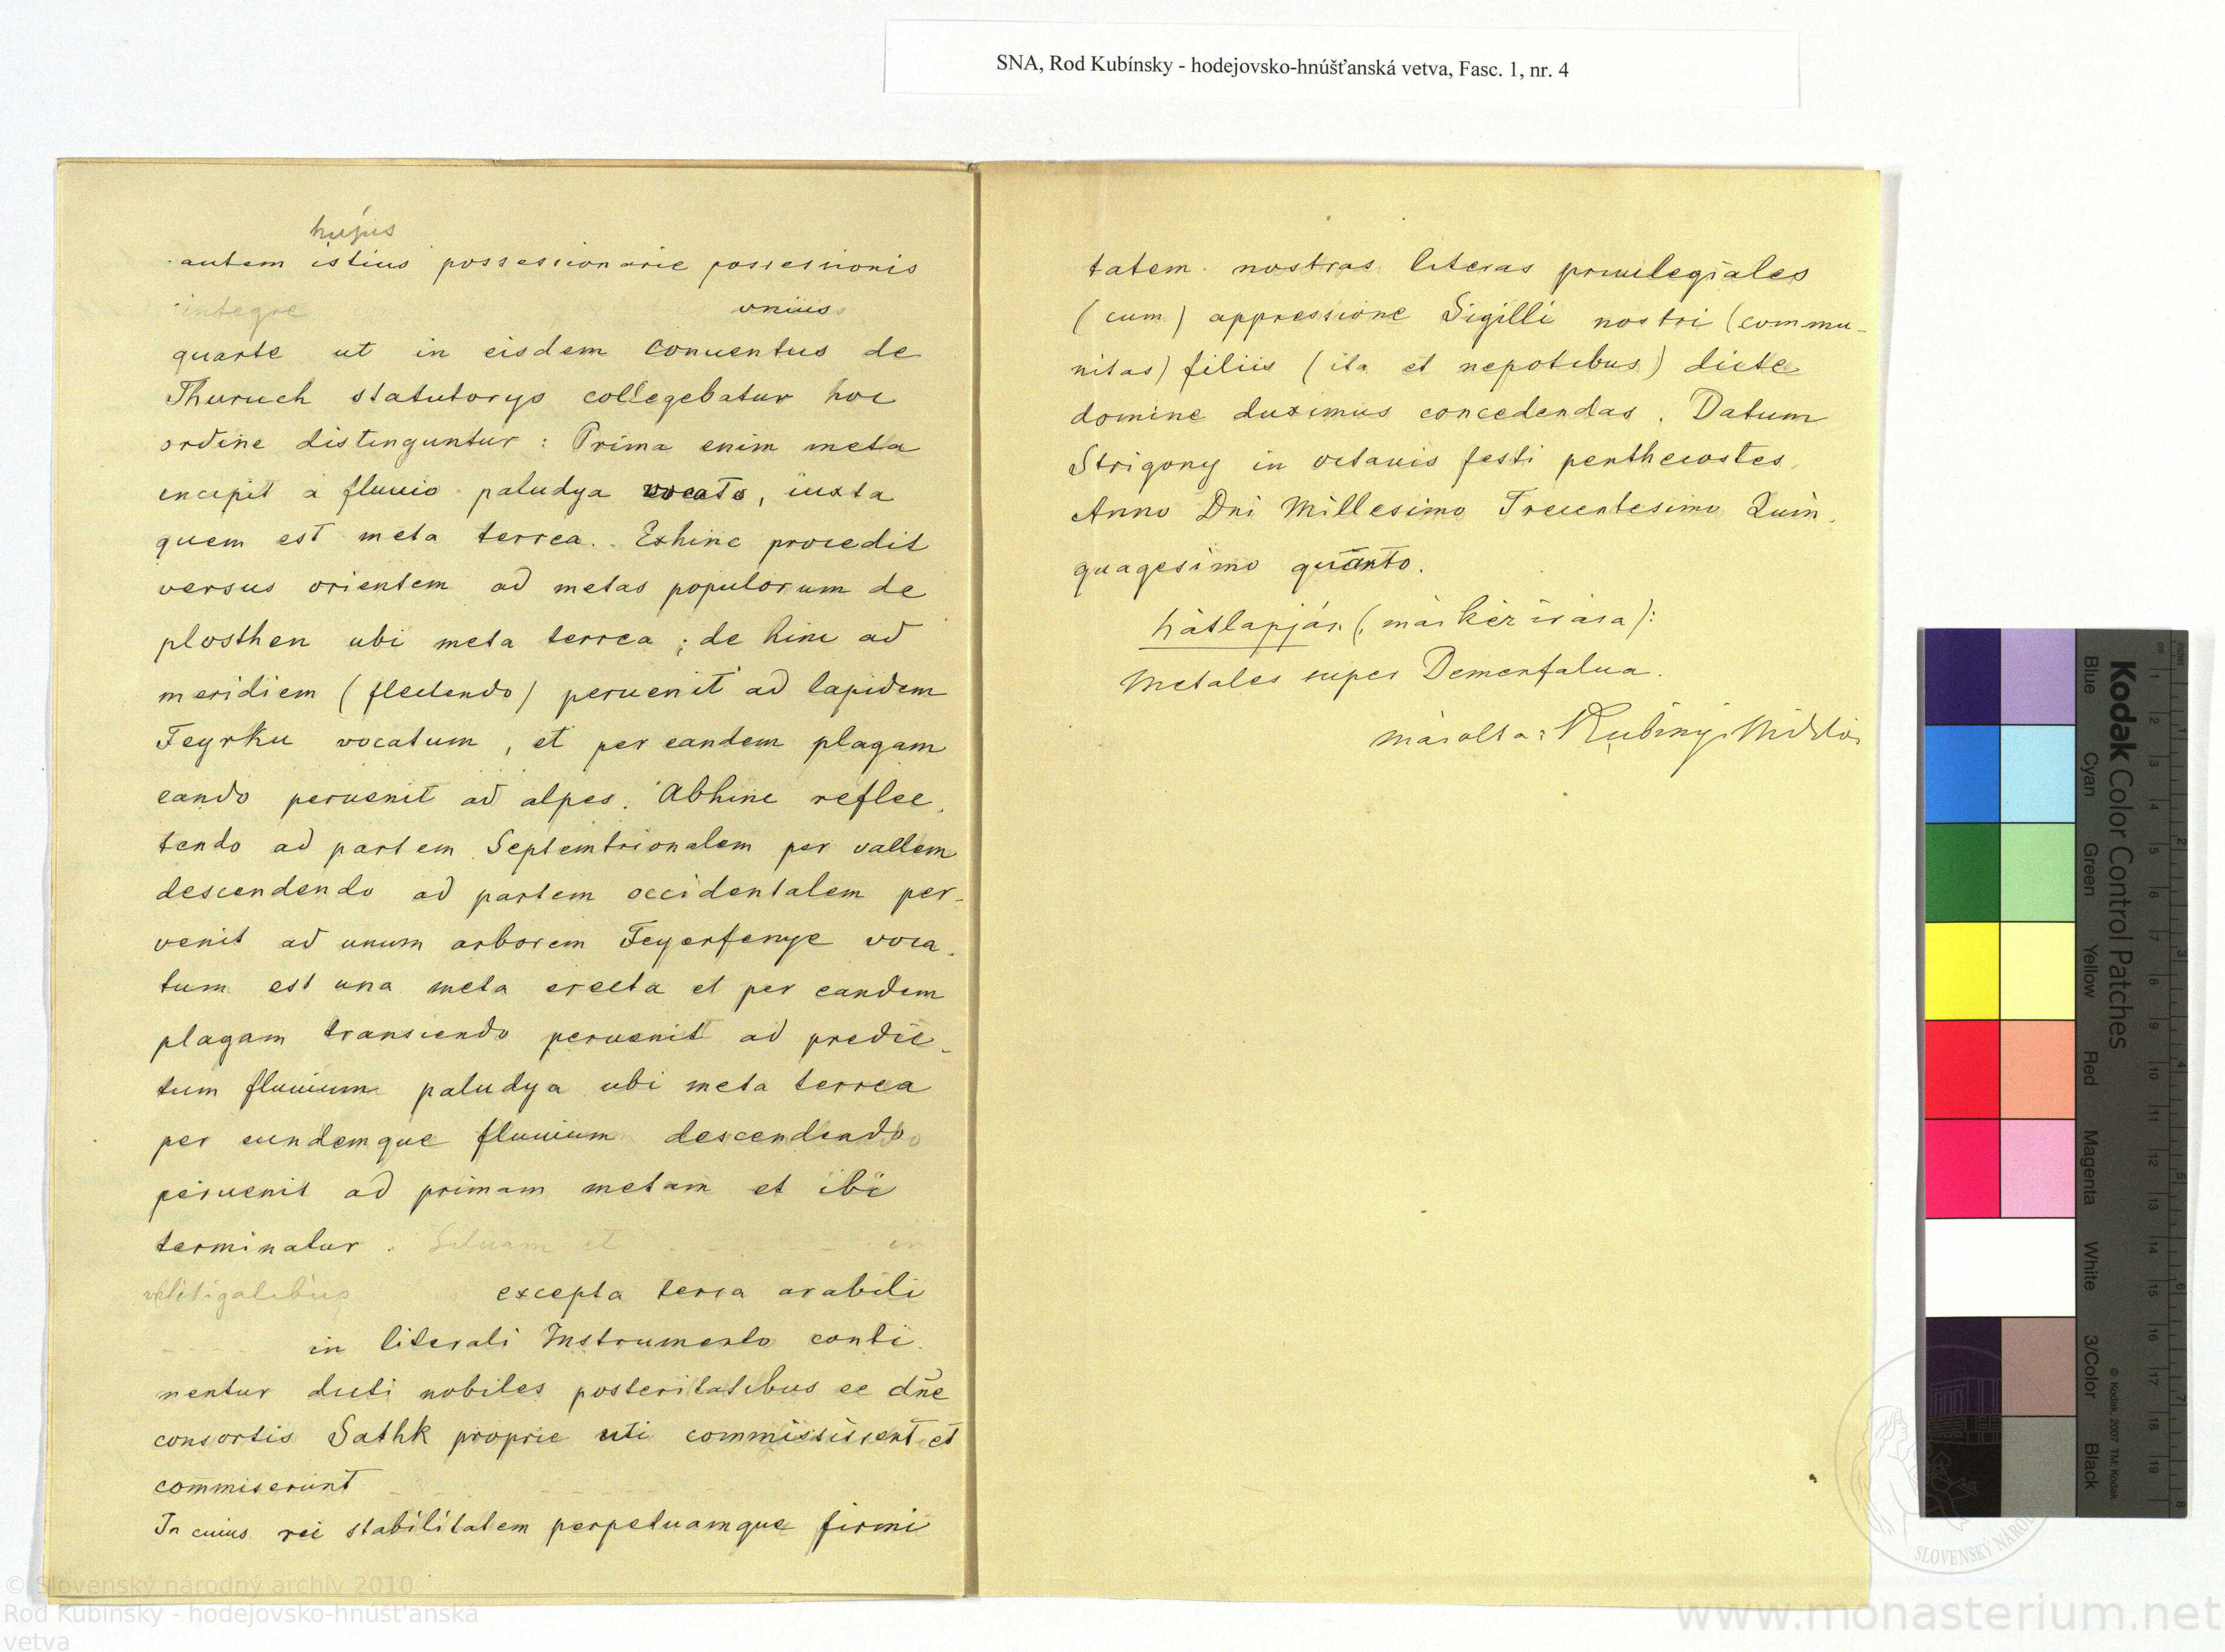 SNA, Rod Kubínsky - hodejovsko-hnúšťanská vetva, Fasc. 1, nr. 4
hujus
autem istius possessionarie possessionis
integre unius
quarte ut in eisdem Conuentus de
Thuruch statutorys collegebatur hoc
ordine distinguntur : Prima enim meta
incipit a fluuio paludya vocato, iuxta
quem est meta terrea. Exhinc procedit
versus orientem ad metas populorum de
plosthen ubi meta terrea ; de hinc ad
meridiem (flectendo) peruenit ad lapidem
Feyrku vocatum, et per eandem plagam
eando peruenit ad alpes. Abhinc reflec-
tendo ad partem Septemtrionalem per vallem
descendendo ad partem occidentalem per-
venit ad unum arborem Feyerfenye voca-
tum est una meta erecta et per eandem
plagam transiendo peruenit ad predic-
tum fluuium paludya ubi meta terrea
per eundemque fluuium descendendo
peruenit ad primam metam et ibi
terminatur . Siluam et in
excepta terra arabili
in literali Instrumento conti-
nentur dicti nobiles posteritatibus ee dne
consortis Sathk proprie uti commississent et
commiserunt
In cuius rei stabilitatem perpetuamque firmi
tatem nostras literas priuilegiales
(cum) appressione Sigilli nostri (commu-
nitas) filiis (ita et nepotibus) dicte
domine duximus concedendas. Datum
Strigony in octauis festi penthecostes
Anno Dni Millesimo Trecentesimo Quin-
quagesimo quinto.
hátlapján (más kéz írása):
Metales super Demenfalua.
másolta: Kubinyi Miklós
Kodak Color Control Patches
© Kodak, 2007 TM: Kodak
Blue
Cyan
Green
Yellow
Red
Magenta
White
3/Color
Black
© Slovenský národný archív 2010
Rod Kubínsky - hodejovsko-hnúšťanská
vetva
SLOVENSKÝ NÁROD
www.monasterium.net